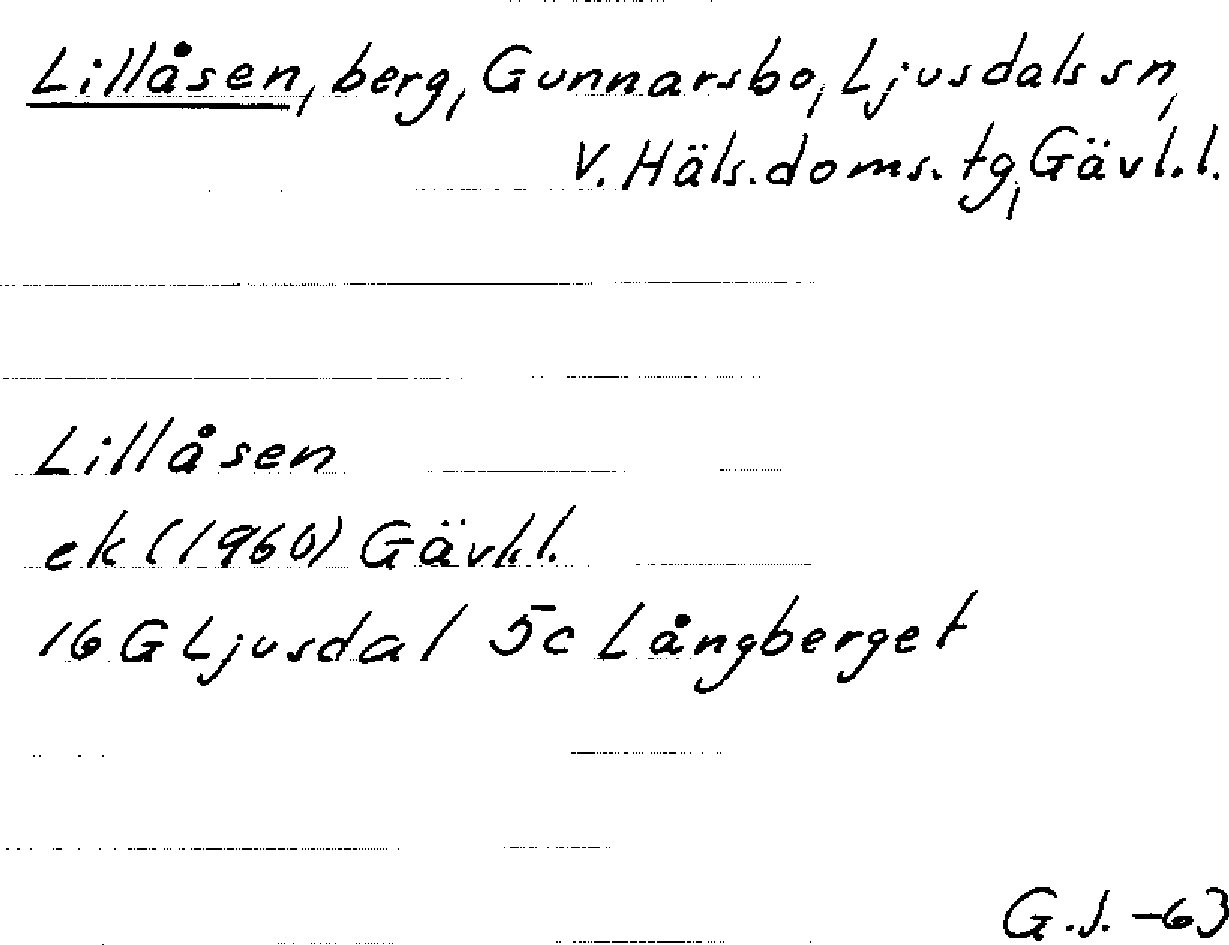 Lillåsen, berg, Gunnarsbo, Ljusdals sn,
V. Häls. doms. tg, Gävl. l.
Lillåsen
ek (1960) Gävl. l.
16 G Ljusdal 5c Långberget
G.J. -63